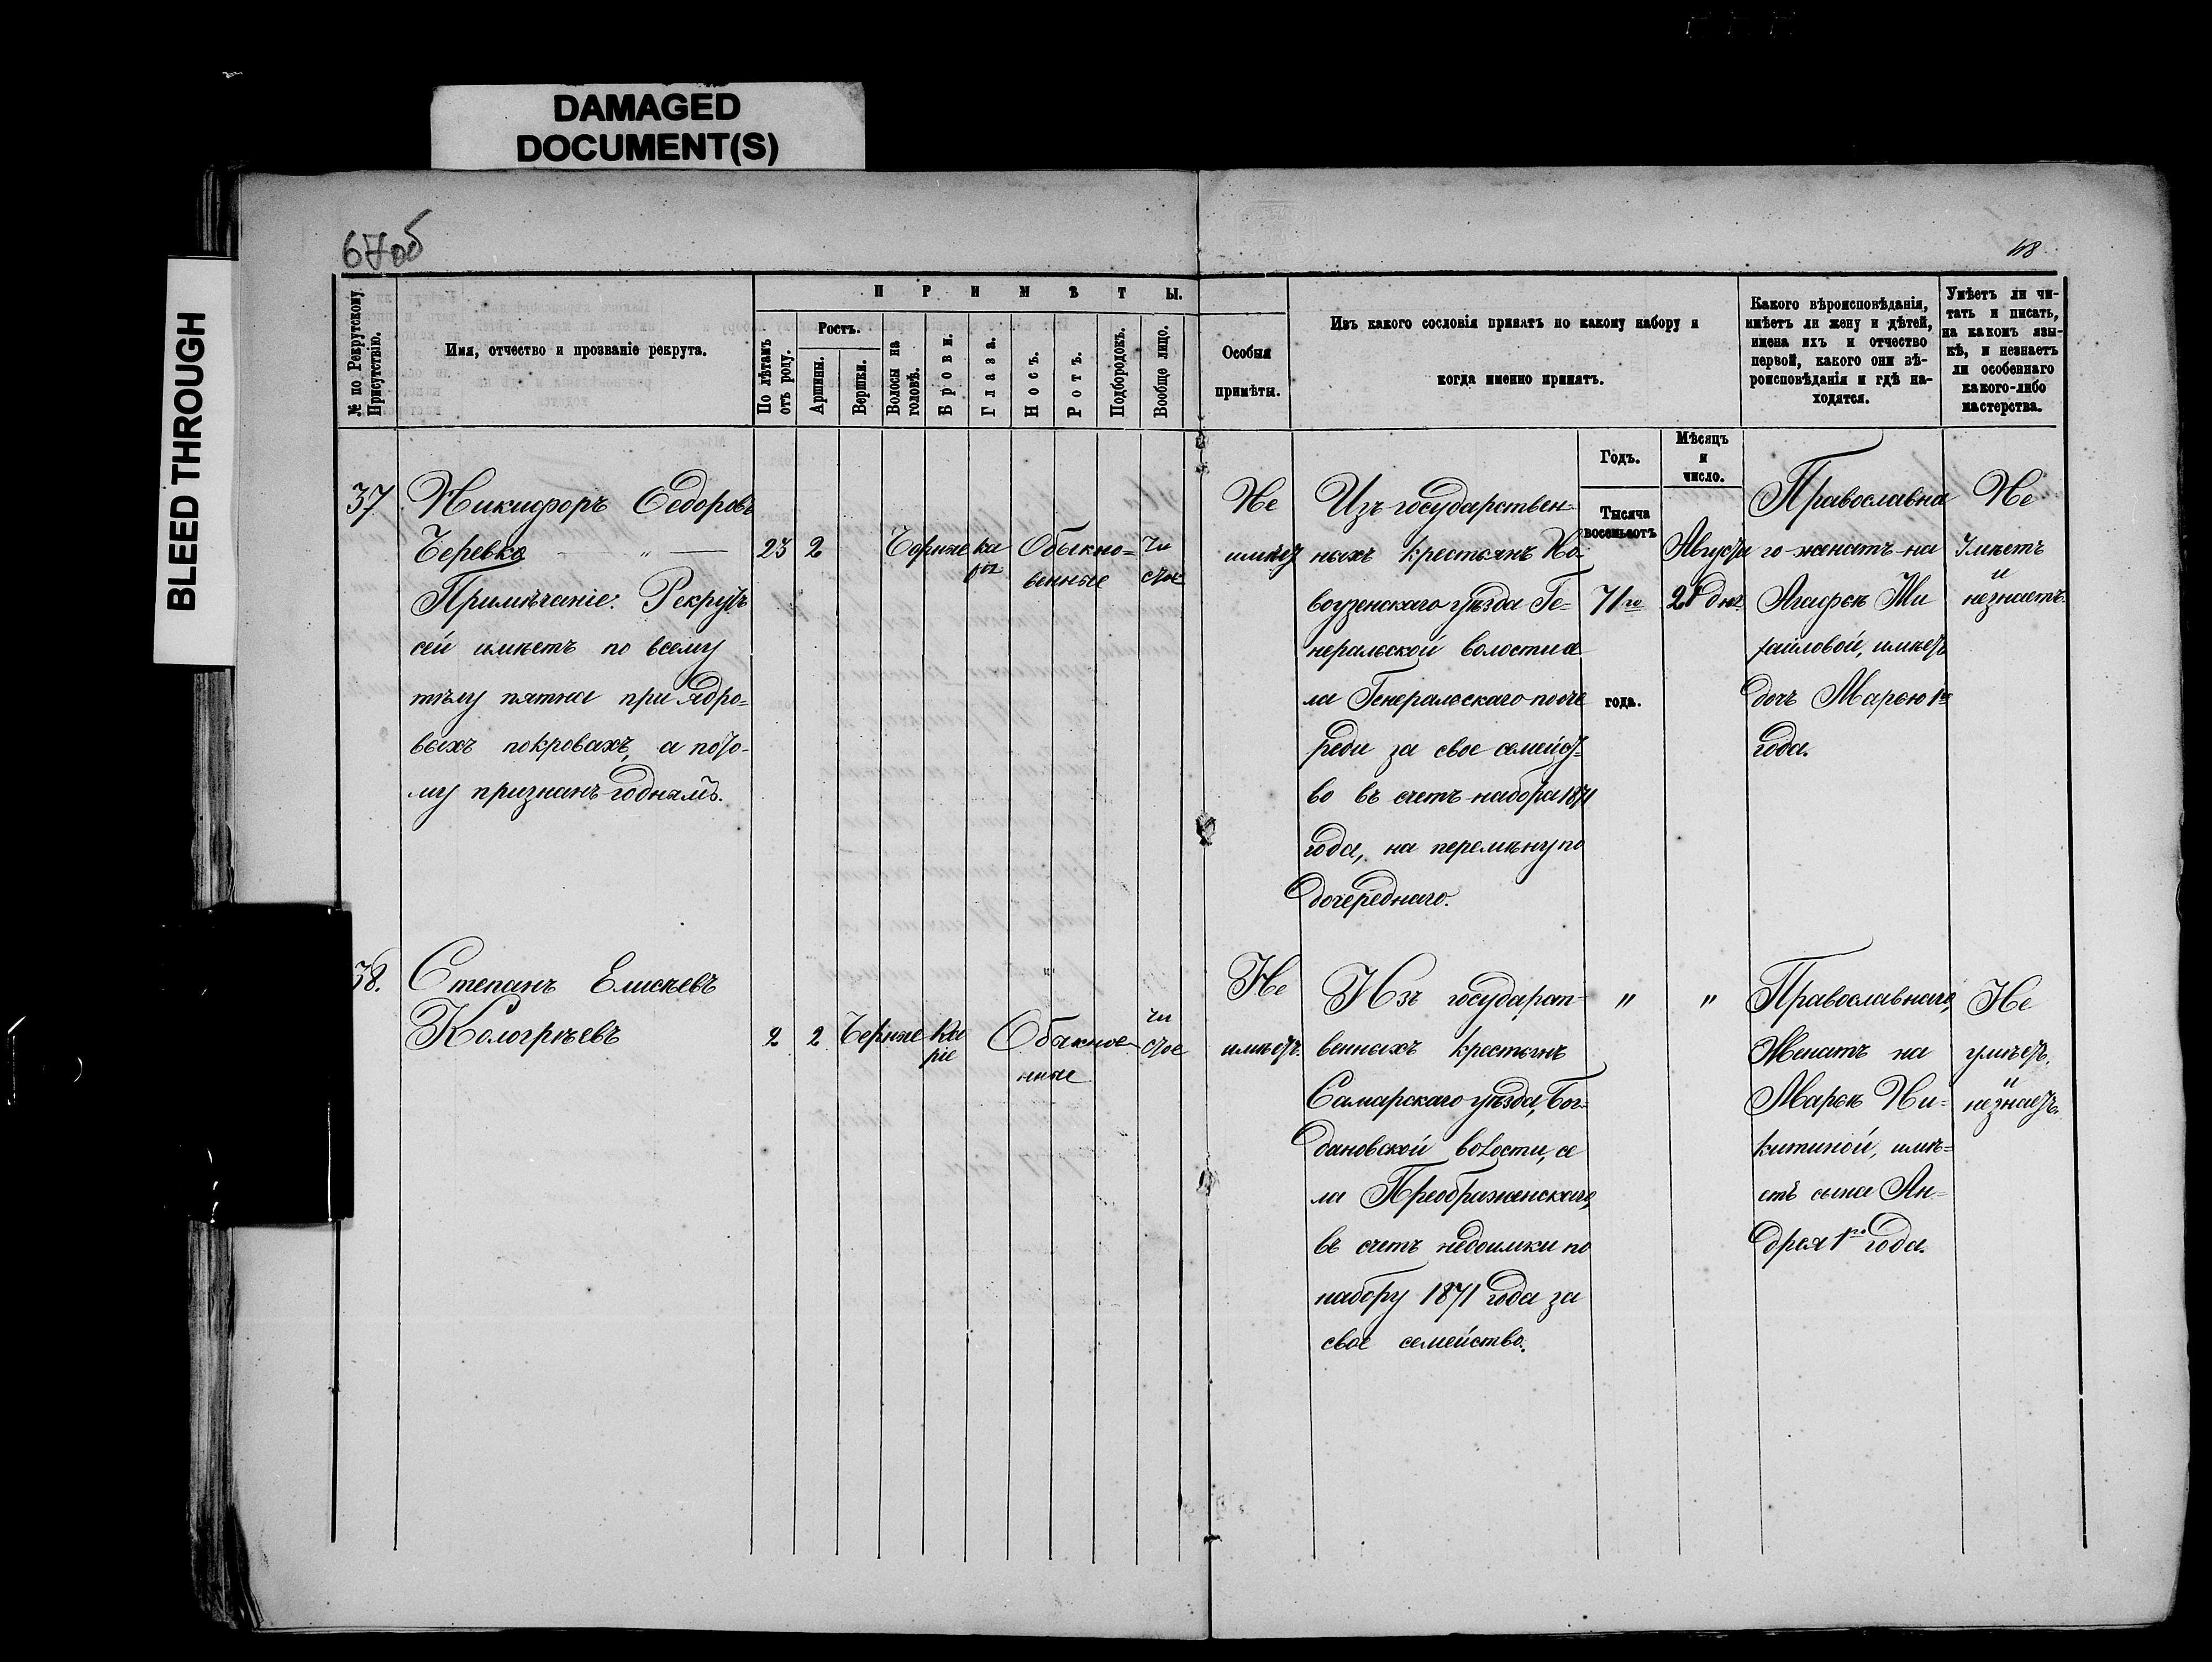 DAMAGED
DOCUMENT(S)
BLEED THROUGH
67об
68
№ по Рекрутскому
Присутствію.
Имя, отчество и прозваніе рекрута.
ПРИМѢТЫ.
По лѣтамъ
отъ роду.
Ростъ.
Аршины.
Вершки.
Волосы на
головѣ.
Брови.
Глаза.
Носъ.
Ротъ.
Подбородокъ.
Вообще лицо.
Особыя
примѣты.
Изъ какого сословія принятъ по какому набору и
когда именно принятъ.
Какого вѣроисповѣданія,
имѣетъ ли жену и дѣтей,
имена ихъ и отчество
первой, какого они вѣ-
роисповѣданія и гдѣ на-
ходятся.
Умѣетъ ли чи-
тать и писать,
на какомъ язы-
кѣ, и незнаетъ
ли особеннаго
какого-либо
мастерства.
Годъ.
Мѣсяцъ
и
число.
37
Никифоръ Ѳедоровъ
Черевко — " —
Примѣчаніе: Рекрутъ
сей имѣетъ по всему
тѣлу пятна при ядро-
выхъ покровахъ, а пото-
му признанъ годнымъ.
23
2
Чорные
ка
рія
Обыкно=
венные
чи
стое
Не
имѣетъ
Изъ государствен-
ныхъ крестьянъ Но-
воузенскаго уѣзда Ге-
неральской волости се
ла Генеральскаго по оче
реди за свое семейст-
во въ счетъ набора 1871
года, на перемѣну по
дочереднаго.
Тысяча
восемьсотъ
71го
года.
Августа
21 дня
Православна
го женатъ на
Агафьѣ Ми
хаиловой, имѣетъ
дочь Марью 1го
года.
Не
умѣетъ
и
незнаетъ.
38.
Степанъ Елисѣевъ
Кологрѣевъ
2
2
Черные
Ка
ріе
Обыкнове
нные
чи
стое
Не
имѣетъ.
Изъ государст-
венныхъ крестьянъ
Самарскаго уѣзда, Бог-
дановской волости, се
ла Преображенскаго,
въ счетъ недоимки по
набору 1871 года за
свое семейство.
"
"
Православнаго,
Женатъ на
Марьѣ Ни-
китиной, имѣ=
етъ сына Ан-
дрея 1го года.
Не
умѣетъ.
и
незнаетъ.